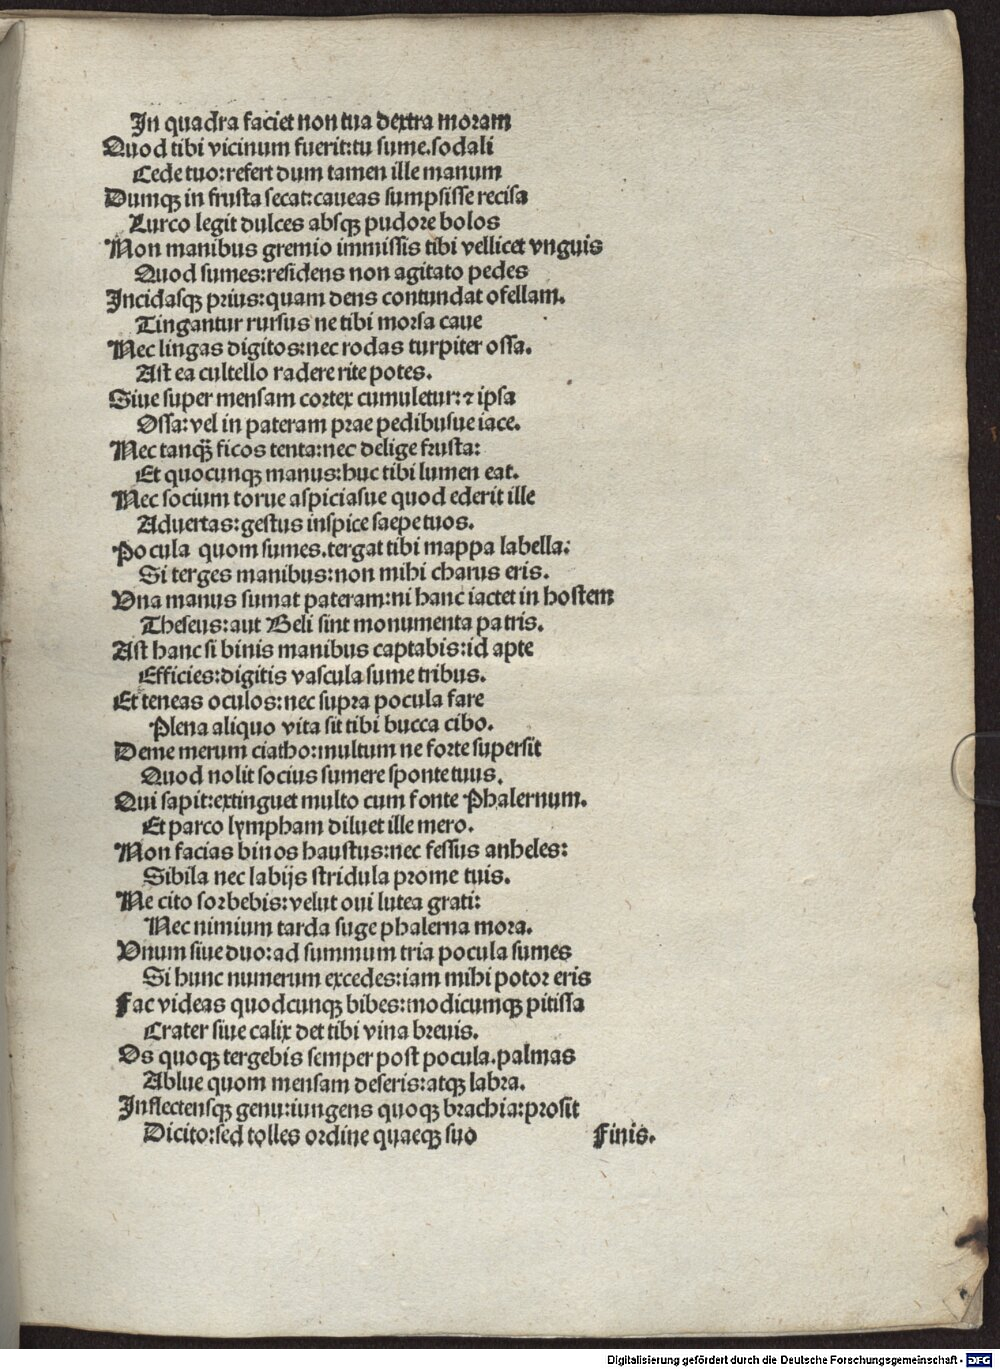 In quadra faciet non tua dextra moram
Quod tibi vicinum fuerit:tu sume.sodali
Cede tuo:refert dum tamen ille manum
Dumqꝫ in frusta secat:caueas sumpsisse recisa
Lurco legit dulces absqꝫ pudore bolos
Non manibus gremio immissis tibi vellicet vnguis
Quod sumes:residens non agitato pedes
Incidasqꝫ prius:quam dens contundat ofellam.
Tingantur rursus ne tibi morsa caue
Nec lingas digitos:nec rodas turpiter ossa.
Ast ea cultello radere rite potes.
Siue super mensam cortex cumuletur:⁊ ipsa
Ossa:vel in pateram prae pedibusue iace.
Nec tanqꝫ̃ ficos tenta:nec delige frusta:
Et quocunqꝫ manus:huc tibi lumen eat.
Nec socium torue aspiciasue quod ederit ille
Aduertas:gestus inspice saepe tuos.
Pocula quom sumes.tergat tibi mappa labella:
Si terges manibus:non mihi charus eris.
Vna manus sumat pateram:ni hanc iactet in hostem
Theseus:aut Beli sint monumenta patris.
Ast hanc si binis manibus captabis:id apte
Efficies:digitis vascula sume tribus.
Et teneas oculos:nec supra pocula fare
Plena aliquo vita sit tibi bucca cibo.
Deme merum ciatho:multum ne forte supersit
Quod nolit socius sumere sponte tuus.
Qui sapit:extinguet multo cum fonte Phalernum.
Et parco lympham diluet ille mero.
Non facias binos haustus:nec fessus anheles:
Sibila nec labijs stridula prome tuis.
Ne cito sorbebis:velut oui lutea grati:
Nec nimium tarda suge phalerna mora.
Vnum siue duo:ad summum tria pocula sumes
Si hunc numerum excedes:iam mihi potor eris
Fac videas quodcunqꝫ bibes:modicumqꝫ pitissa
Crater siue calix det tibi vina breuis.
Os quoqꝫ tergebis semper post pocula.palmas
Ablue quom mensam deseris:atqꝫ labra.
Inflectensqꝫ genu:iungens quoqꝫ brachia:prosit
Dicito:sed tolles ordine quaeqꝫ suo Finis.
Digitalisierung gefördert durch die Deutsche Forschungsgemeinschaft - DFG